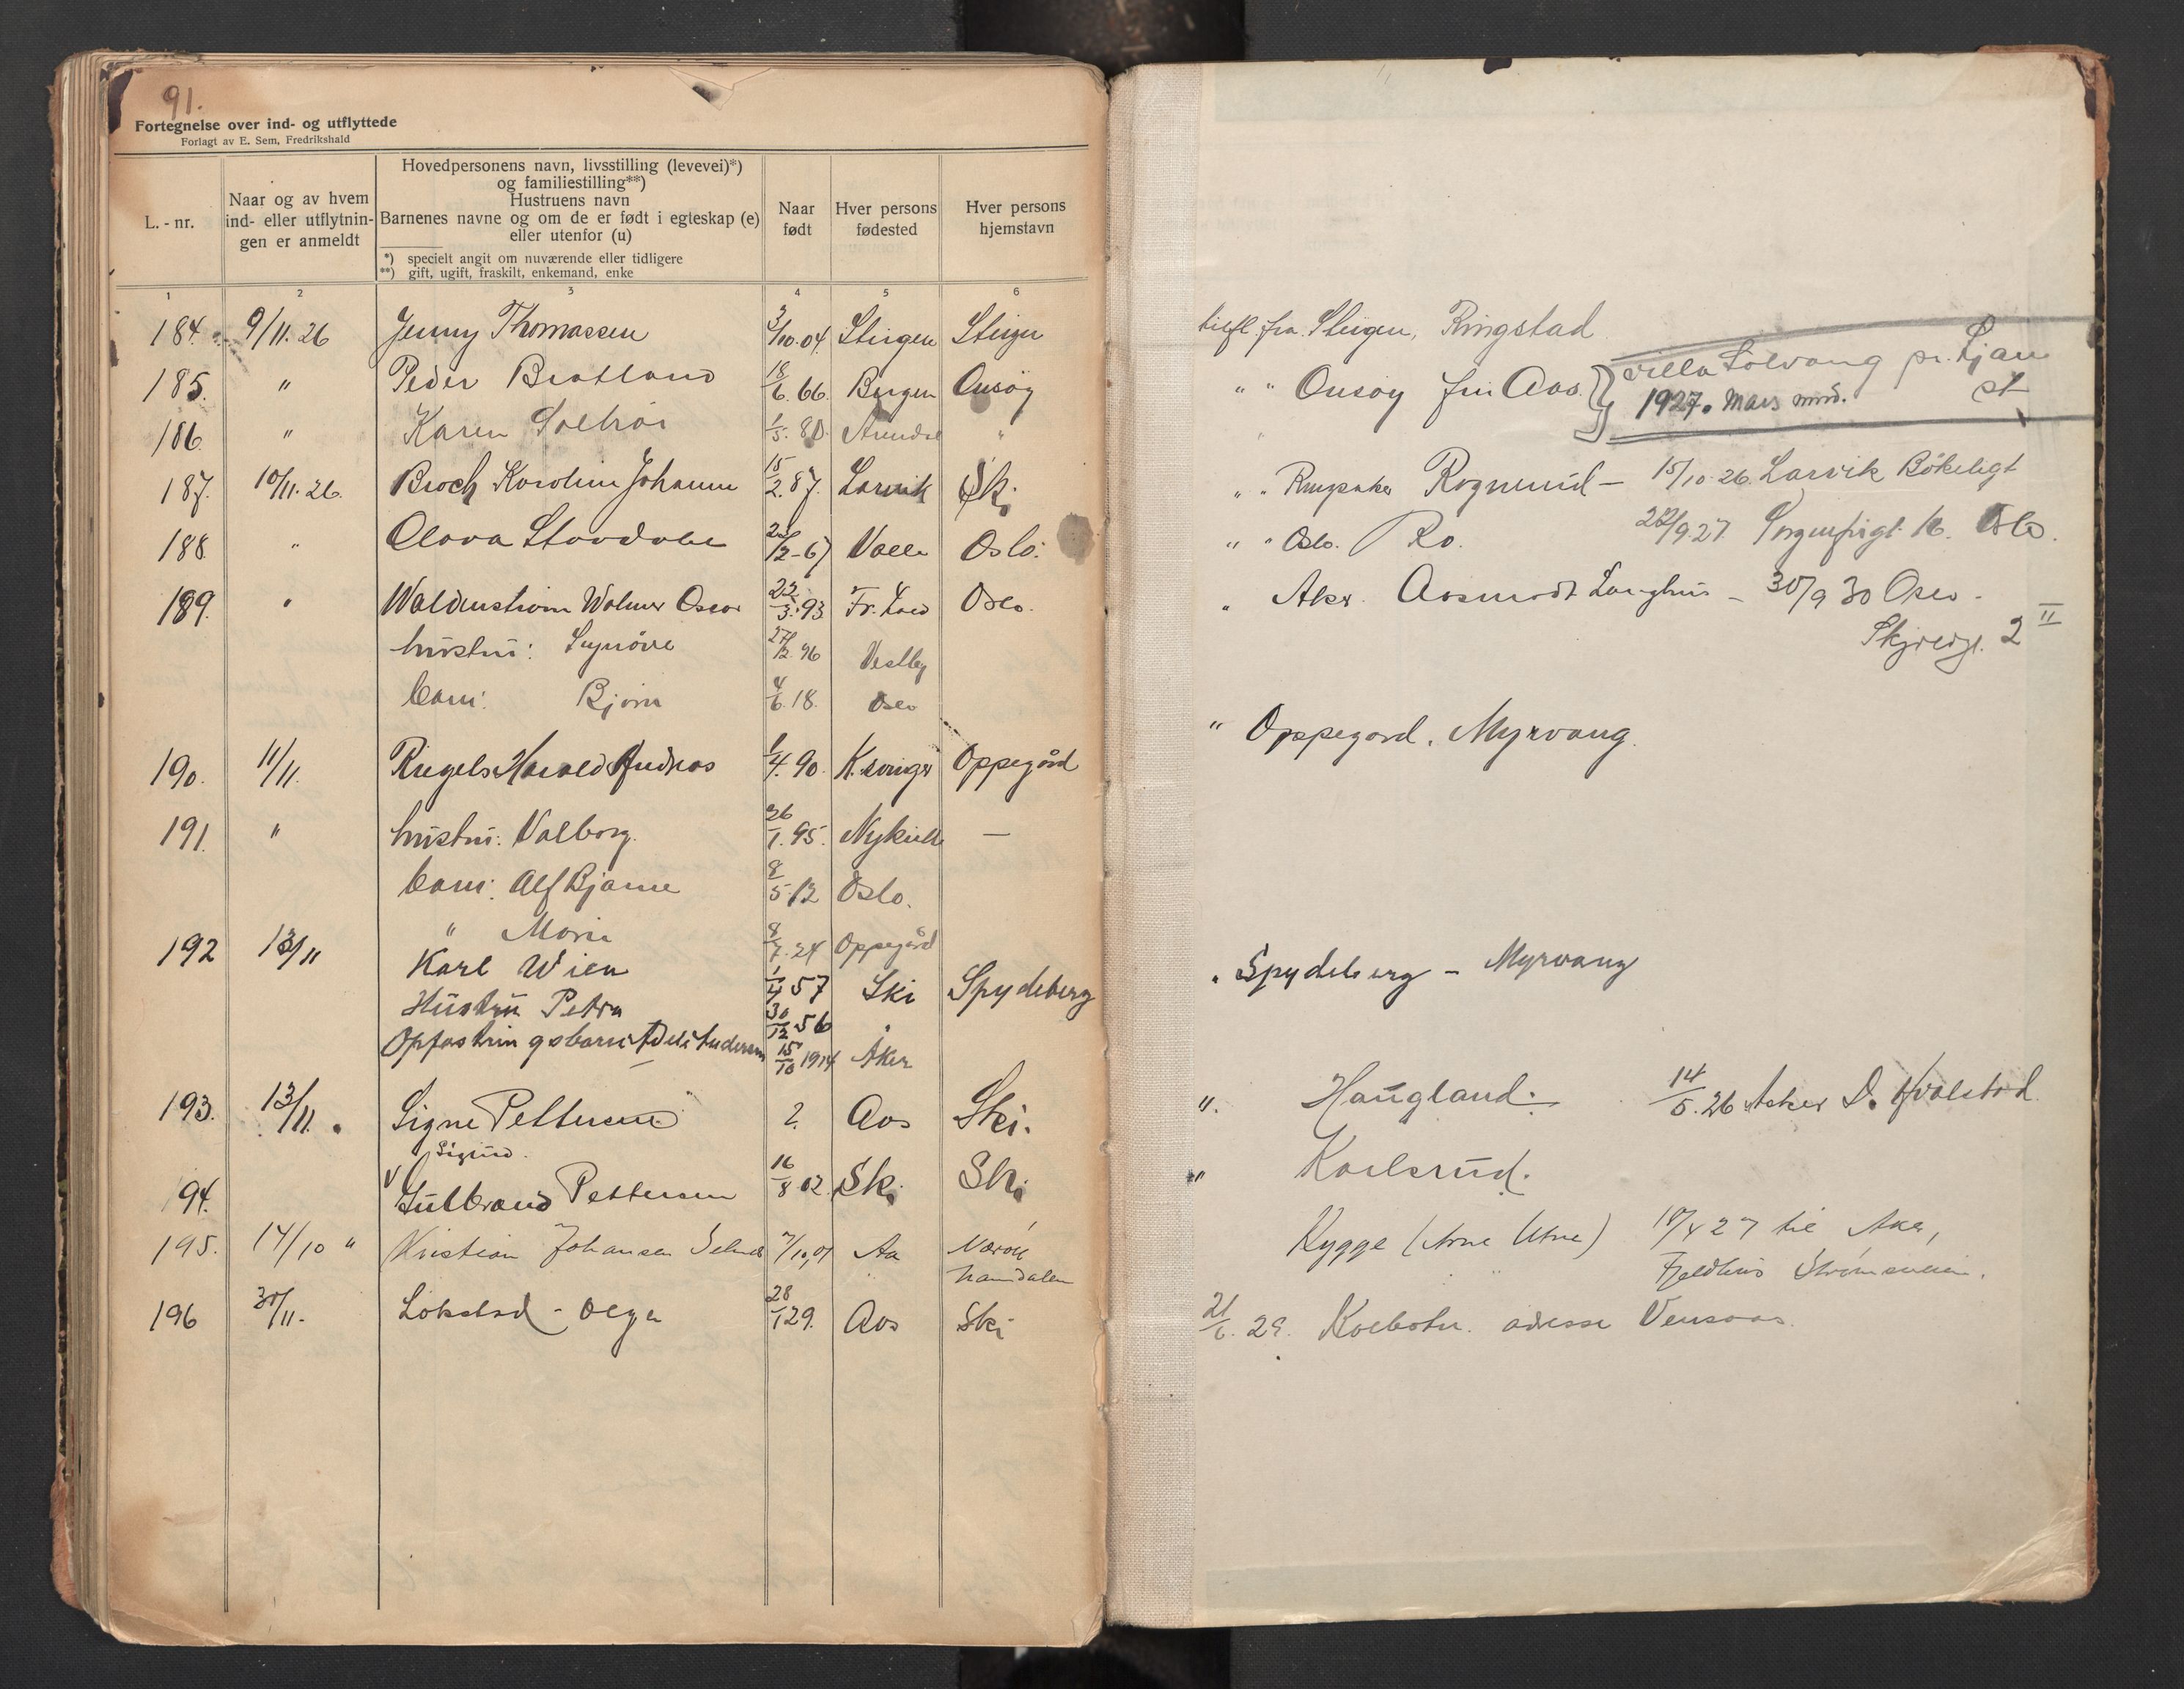 91.
Fortegnelse over ind- og utflyttede
Forlagt av E. Sem, Fredrikshald
L. - nr.
Naar og av hvem
ind- eller utflytnin-
gen er anmeldt
Hovedpersonens navn, livsstilling (levevei)*)
og familiestilling**)
Hustruens navn
Barnenes navne og om de er født i egteskap (e)
eller utenfor (u)
*) specielt angit om nuværende eller tidligere
**) gift, ugift, fraskilt, enkemand, enke
Naar
født
Hver persons
fødested
Hver persons
hjemstavn
1 2 3 4 5 6
184. 9/11.26 Jenny Thomassen 3/10.04. Steigen Steigen
185. " Peder Bratland 18/6.66. Bergen Onsøy
186. " Karen 1/5.80. Arendal "
187. 10/11.26. Broch Karoline Johanne 15/2.87. Larvik Ski
188 " Olava 67 Valle Oslo.
189. " Waldenstrøm Walmer Oscar 22/3.93 Oslo.
hustru: Synøve 27/12.96 Vestby
barn: Bjørn 4/6.18. Oslo
190. 11/11. Ringels Harald Andreas 1/4.90. K.svinger Oppegård
191. " hustru: Valborg. 26/1.95. —
barn: Alf Bjarne 8/5.12 Oslo.
" Maria 8/7.24 Oppegård
192 13/11 Karl Wien 1/4 57 Ski Spydeberg
Hustru Petra 30/12 56 "
Opfostringsbarn: Andersen 15/10 1914 Aker
193. 13/11. Signe Pettersen ? Aas Ski.
Sigrid.
94. Gulbrand Pettersen 16/8 02. Ski Ski
195. 14/10 " Kristian Johansen 7/10,01 Aa Nærøy
Namdalen
196 30/11. Løkstad - Olga 28/1 29. Aas Ski
tilfl. fra Steigen, Ringstad
" " Onsøy fru Aas. villa Solvang pr. Ljan
st
1927. Mars mnd.
"
" " Ringsaker Rognerud — 15/10.26. Larvik Bøkeligt
" " Oslo. Ro. 22/9.27. Sorgenfrigt. 16. Oslo.
" Aker. Aasmodt Langhus — 30/9 30 Oslo.
2 II
" Oppegard. Myrvang.
" Spydeberg — Myrvang
". Haugland. 14/5.26 Asker D. Hvalstad.
" Karlsrud.
Rygge (Arne Utne) 19/4 27 til Aker,
Fjeldhus Strømsveien.
21/6.29. Kolbotn. adresse Vensaas.